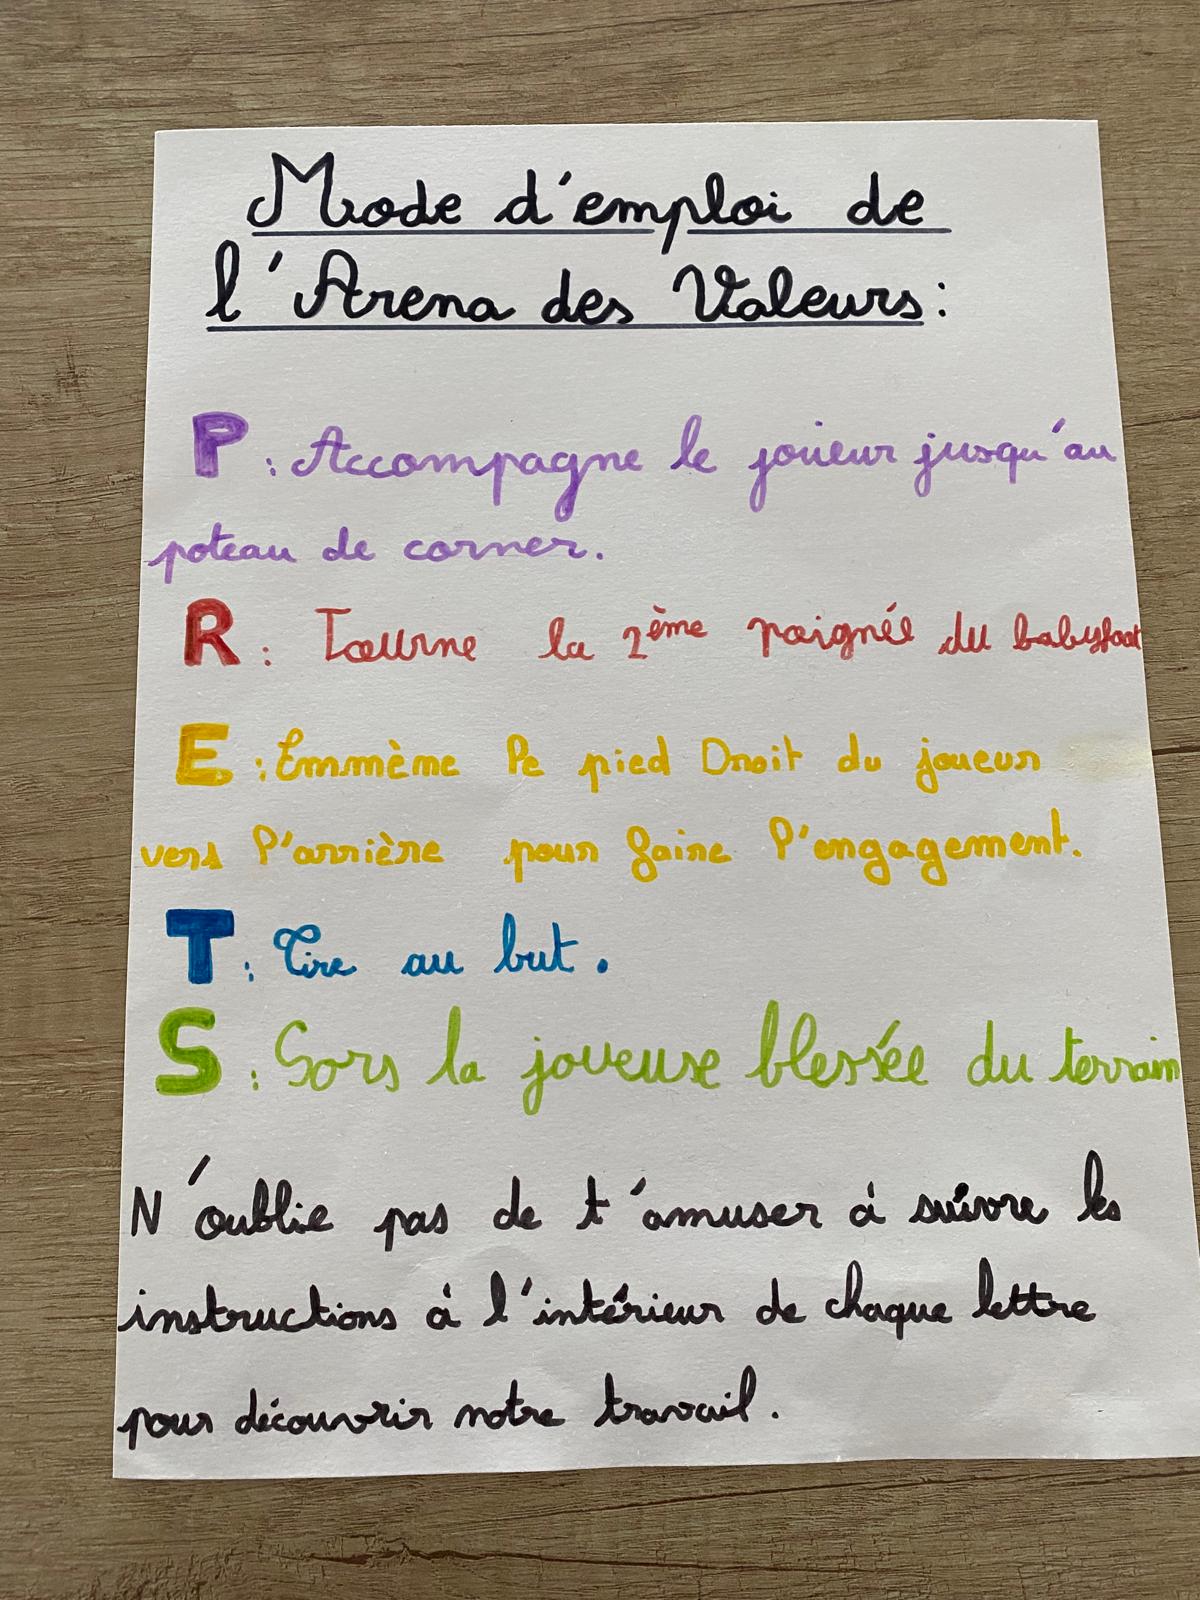 Mode d'emploi de
l'Arena des Valeurs :
P : Accompagne le joueur jusqu'au
poteau de corner.
R : Tourne la 2ème poignée du babyfoot
E : Emmène le pied Droit du joueur
vers l'arrière pour faire l'engagement.
T : Tire au but.
S : Sors la joueuse blessée du terrain
N'oublie pas de t'amuser à suivre les
instructions à l'intérieur de chaque lettre
pour découvrir notre travail.